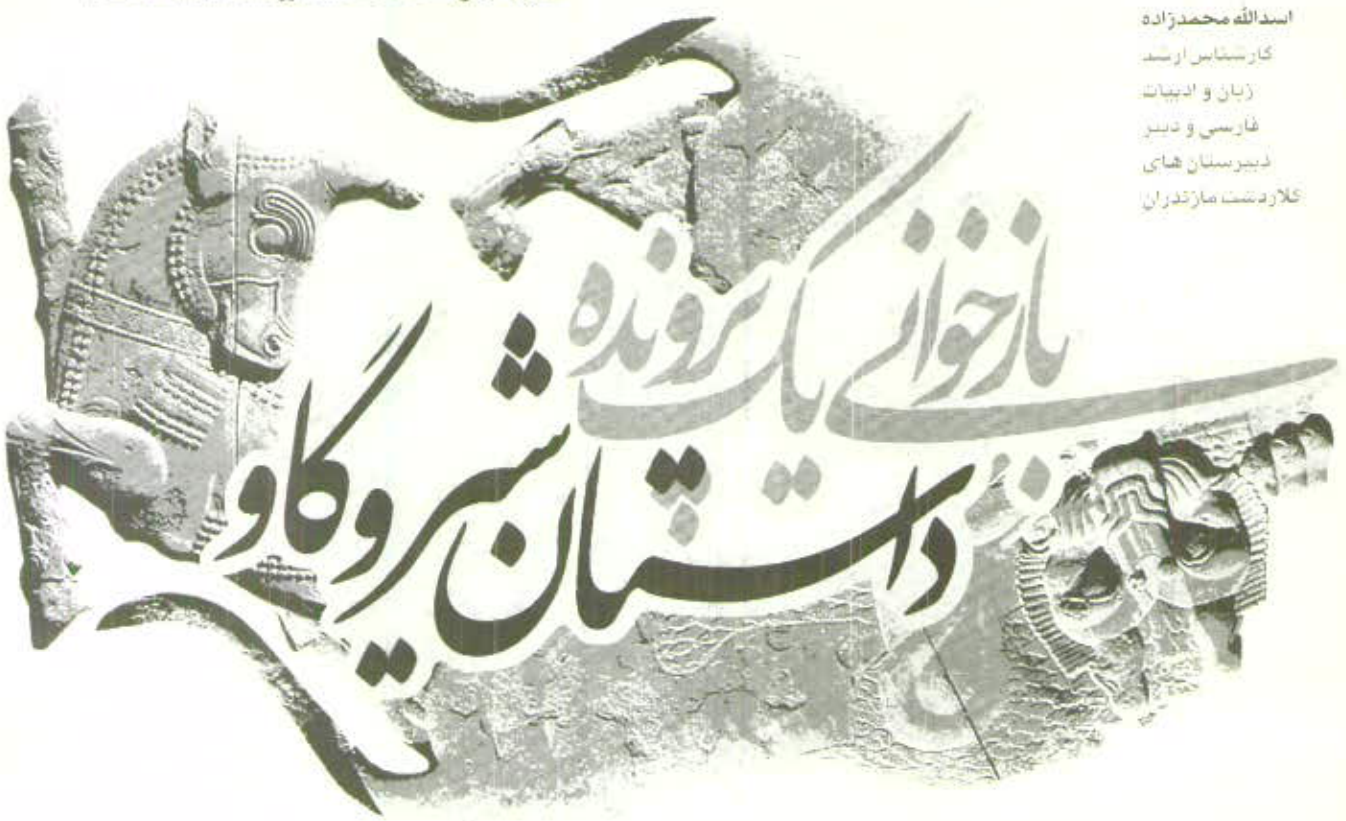 اسدالله محمدزاده
کارشناس ارشد
زبان و ادبیات
فارسی و دبیر
دبیرستان های
کلاردشت مازندران
بازخوانی یک پرونده
داستان شیر و گاو